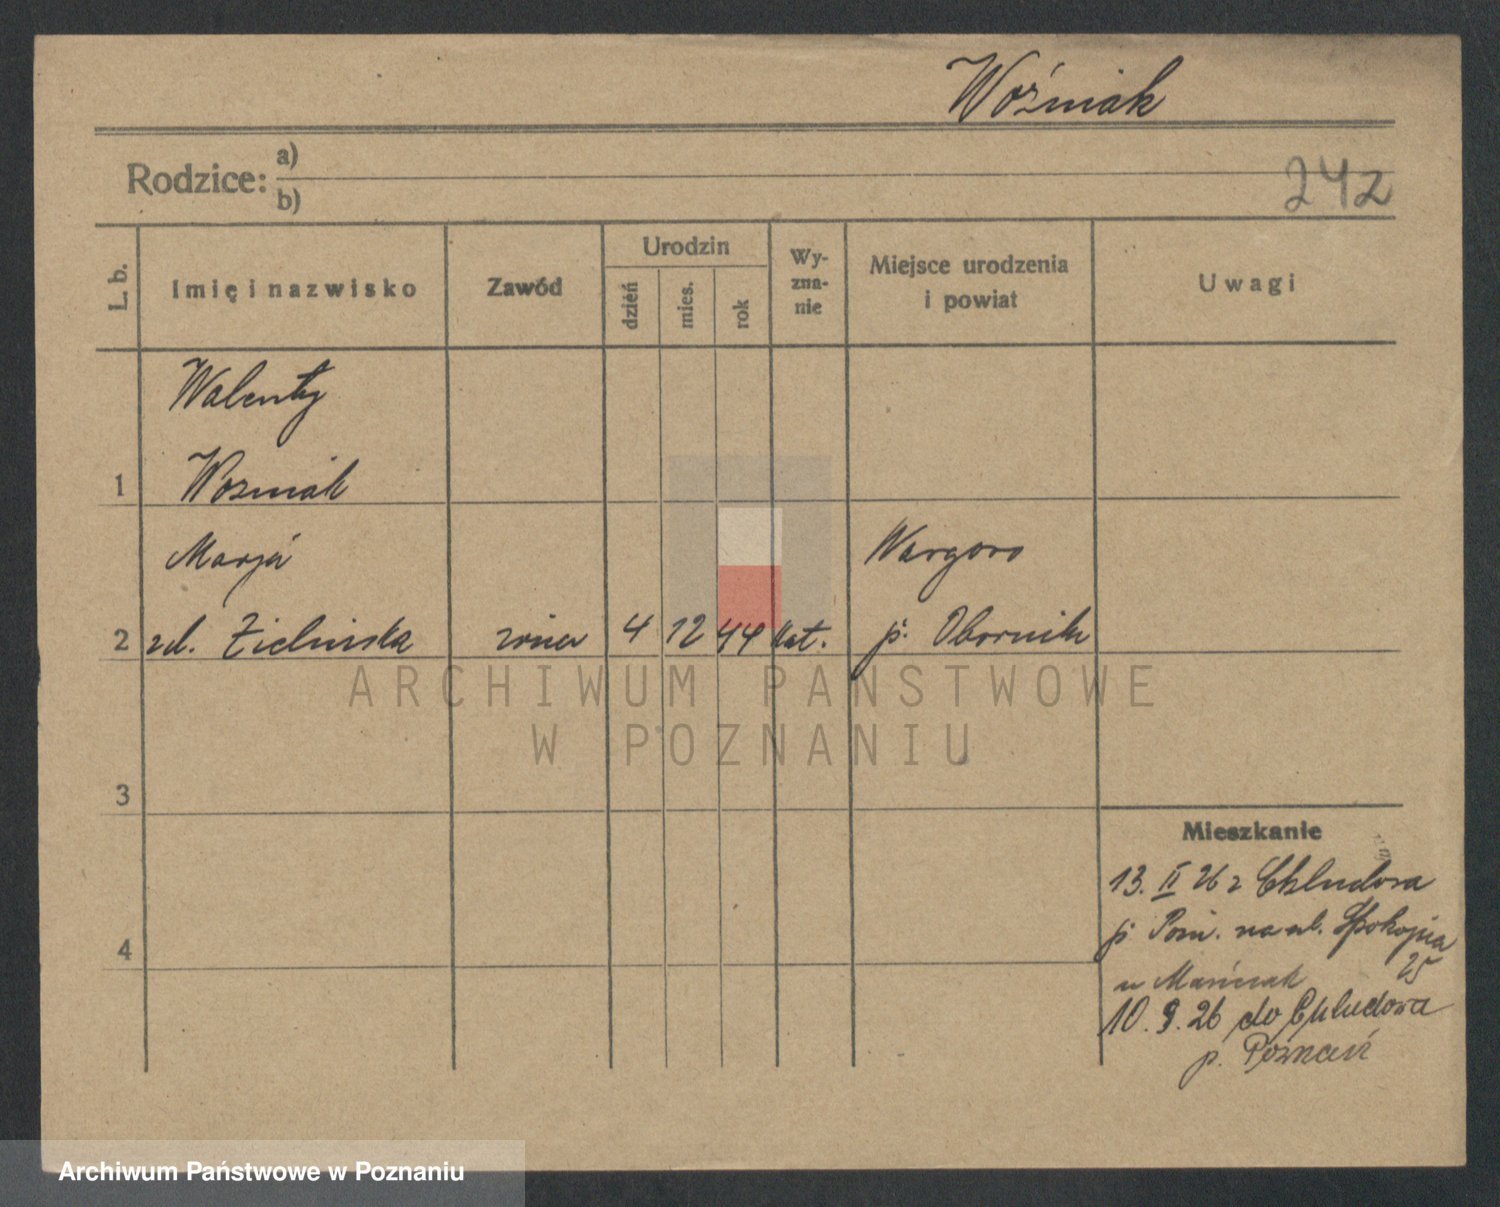 Woźniak
Rodzice: a)
b)
242
L. b.
Imię i nazwisko
Zawód
Urodzin
dzień
mies.
rok
Wy-
zna-
nie
Miejsce urodzenia
i powiat
Uwagi
Walenty
1 Wozniak
Marja
Wargowo
2 zd. Zielinska
4 12 44 kat. p. Obornik
ARCHIWUM PAŃSTWOWE
W POZNANIU
3
Mieszkanie
13. II 26 z Chludowa
p. Pozn. na ul.
25
4
u
10. 9. 26 do Chludowa
p. Poznań
Archiwum Państwowe w Poznaniu